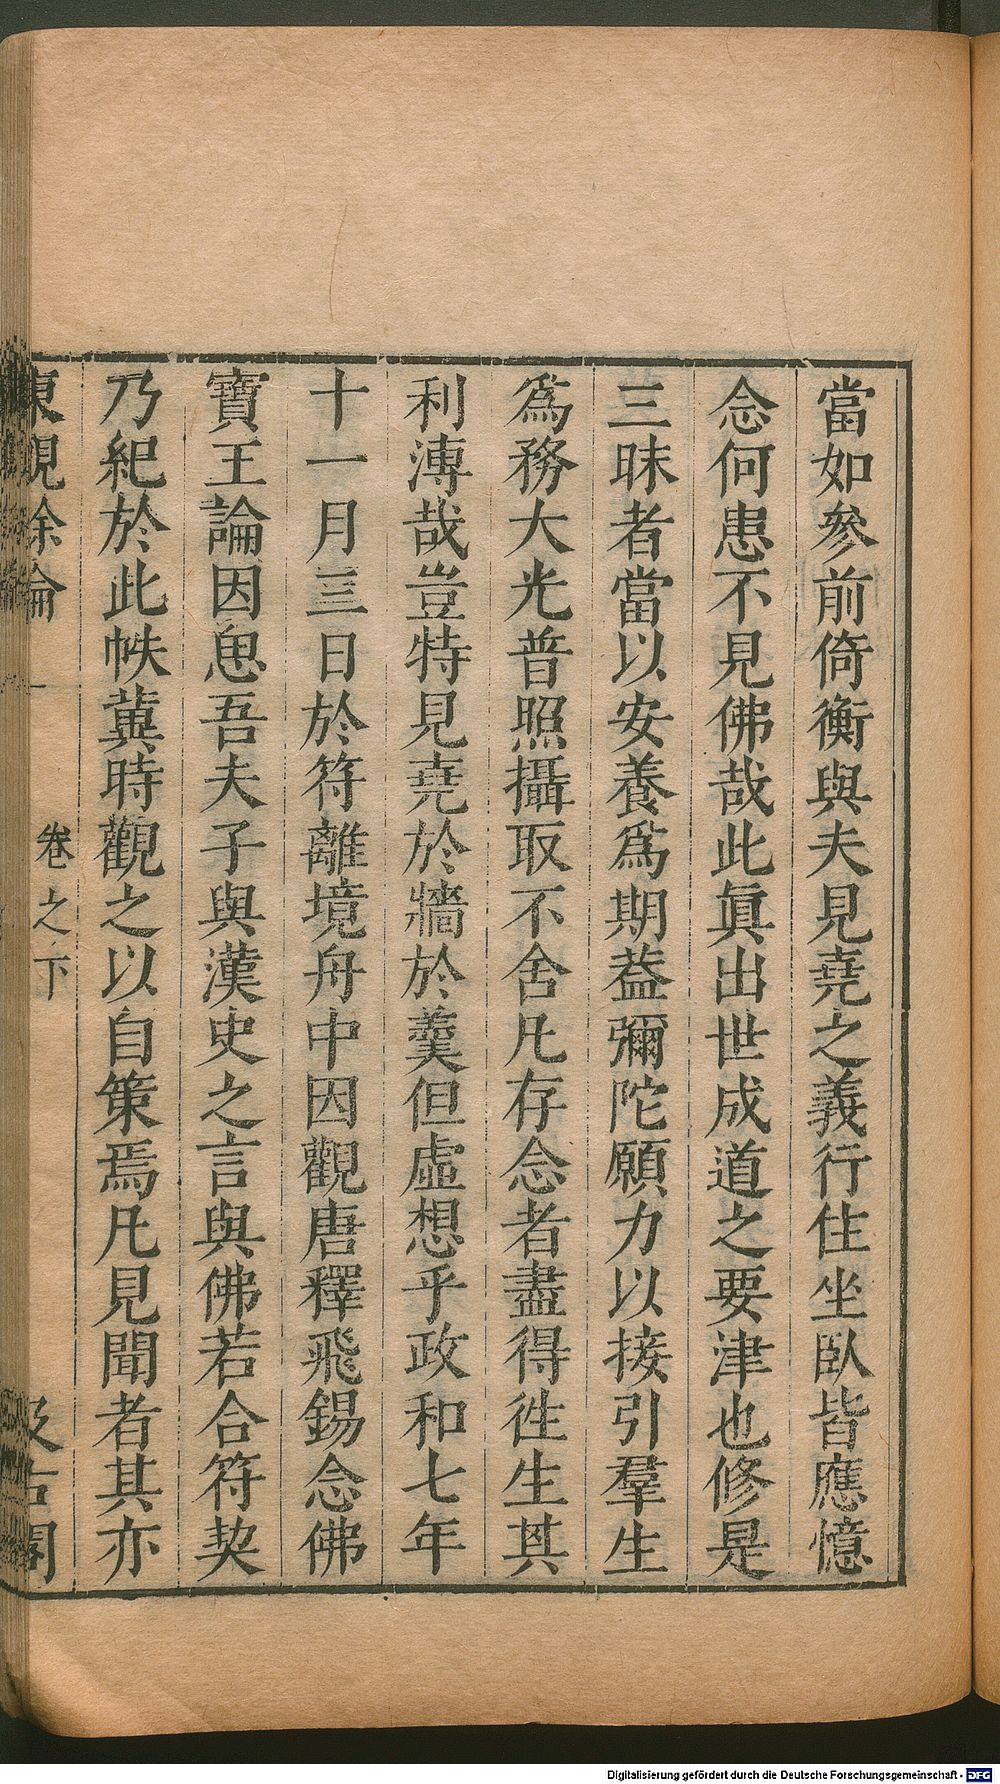 當如參前倚衡與夫見堯之義行住坐臥皆應憶
念何患不見佛哉此眞出世成道之要津也修是
三昧者當以安養爲期葢彌陀願力以接引羣生
爲務大光普照攝取不舍凡存念者盡得徃生其
利溥哉豈特見堯於牆於羹但虛想乎政和七年
十一月三日於符離境舟中因觀唐釋飛錫念佛
寶王論因思吾夫子與漢史之言與佛若合符契
乃紀於此帙冀時觀之以自策焉凡見聞者其亦
東觀餘論 卷之下 汲古閣
Digitalisierung gefördert durch die Deutsche Forschungsgemeinschaft - DFG